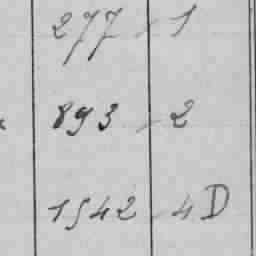 277 - 1
893 - 2
1542 - 4D